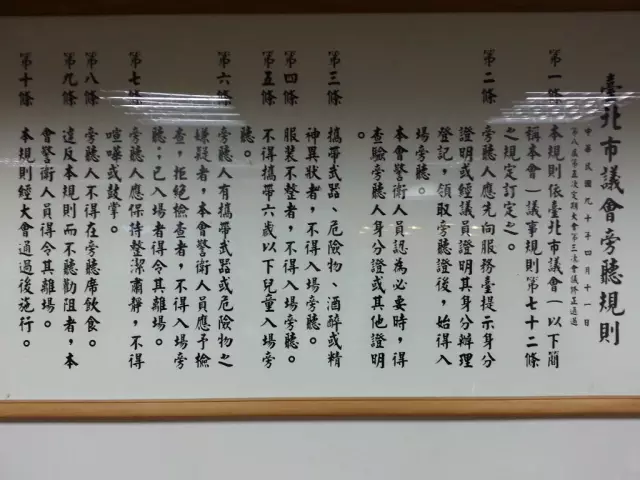 臺北市議會旁聽規則
中華民國九十年四月十一日
第八屆第五次定期大會第三次會議修正通過
第一條 本規則依臺北市議會(以下簡
稱本會)議事規則第七十二條
之規定訂定之。
第二條 旁聽人應先向服務臺提示身分
證明或經議員證明其身分辦理
登記,領取旁聽證後,始得入
場旁聽。
本會警衛人員認為必要時,得
查驗旁聽人身分證或其他證明
。
第三條 攜帶武器、危險物、酒醉或精
神異狀者,不得入場旁聽。
第四條 服裝不整者,不得入場旁聽。
第五條 不得攜帶六歲以下兒童入場旁
聽。
第六條 旁聽人有攜帶武器或危險物之
嫌疑者,本會警衛人員應予檢
查,拒絕檢查者,不得入場旁
聽;已入場者得令其離場。
第七條 旁聽人應保持整潔肅靜,不得
喧嘩或鼓掌。
第八條 旁聽人不得在旁聽席飲食。
第九條 違反本規則而不聽勸阻者,本
會警衛人員得令其離場。
第十條 本規則經大會通過後施行。